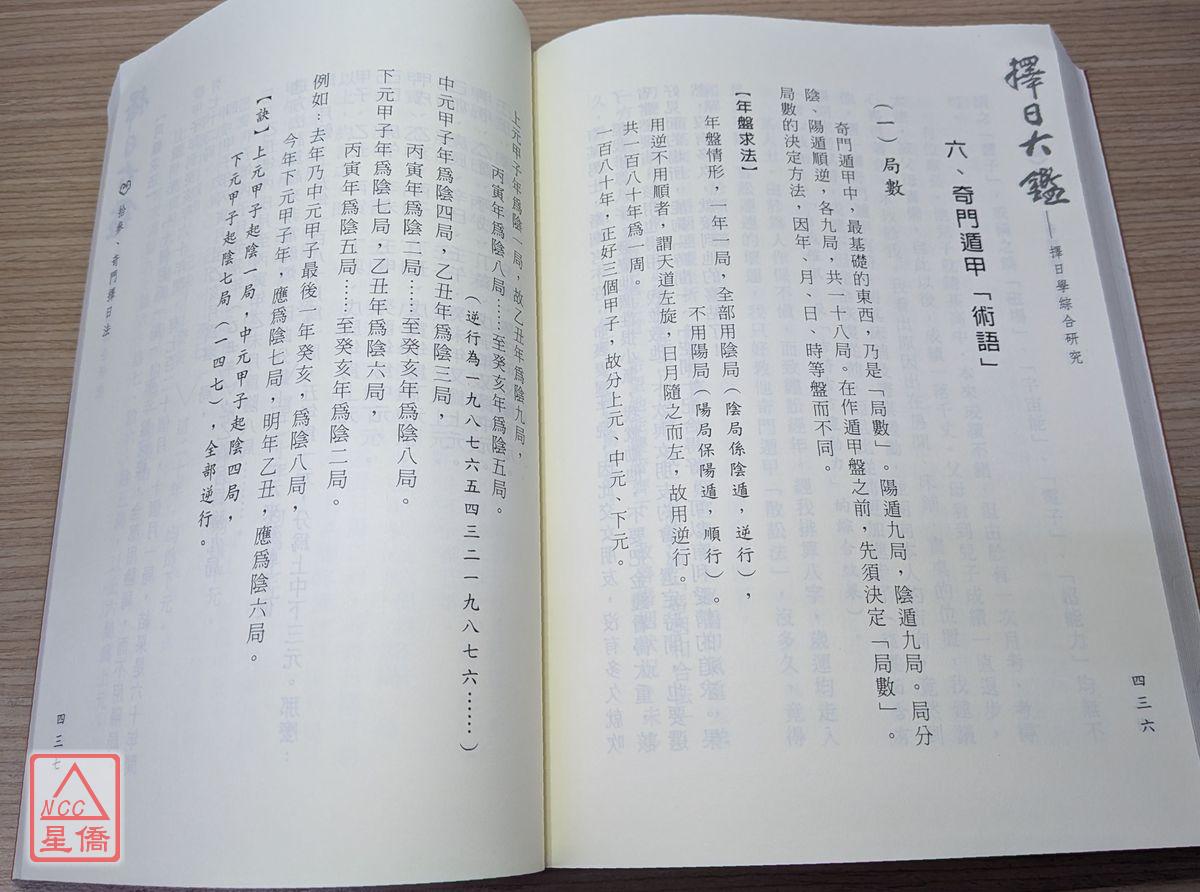 擇日大鑑——擇日學綜合研究
四三六
六、奇門遁甲「術語」
(一)局數
奇門遁甲中,最基礎的東西,乃是「局數」。陽遁九局,陰遁九局。局分
陰、陽遁順逆,各九局,共一十八局。在作遁甲盤之前,先須決定「局數」。
局數的決定方法,因年、月、日、時等盤而不同。
【年盤求法】
年盤情形,一年一局,全部用陰局(陰局係陰遁,逆行),
不用陽局(陽局保陽遁,順行)。
用逆不用順者,謂天道左旋,日月隨之而左,故用逆行。
共一百八十年爲一周。
一百八十年,正好三個甲子,故分上元、中元、下元。
上元甲子年爲陰一局,故乙丑年爲陰九局,
丙寅年爲陰八局……至癸亥年爲陰五局。
(逆行為一九八七六五四三二一九八七六……)
中元甲子年爲陰四局,乙丑年爲陰三局,
丙寅年爲陰二局……至癸亥年爲陰八局。
下元甲子年爲陰七局,乙丑年爲陰六局,
丙寅年爲陰五局……至癸亥年爲陰二局。
例如:去年乃中元甲子最後一年癸亥,爲陰八局,
今年下元甲子年,應爲陰七局,明年乙丑,應爲陰六局。
【訣】上元甲子起陰一局,中元甲子起陰四局,
下元甲子起陰七局(一四七),全部逆行。
拾參、奇門擇日法
四三七
NCC
星僑